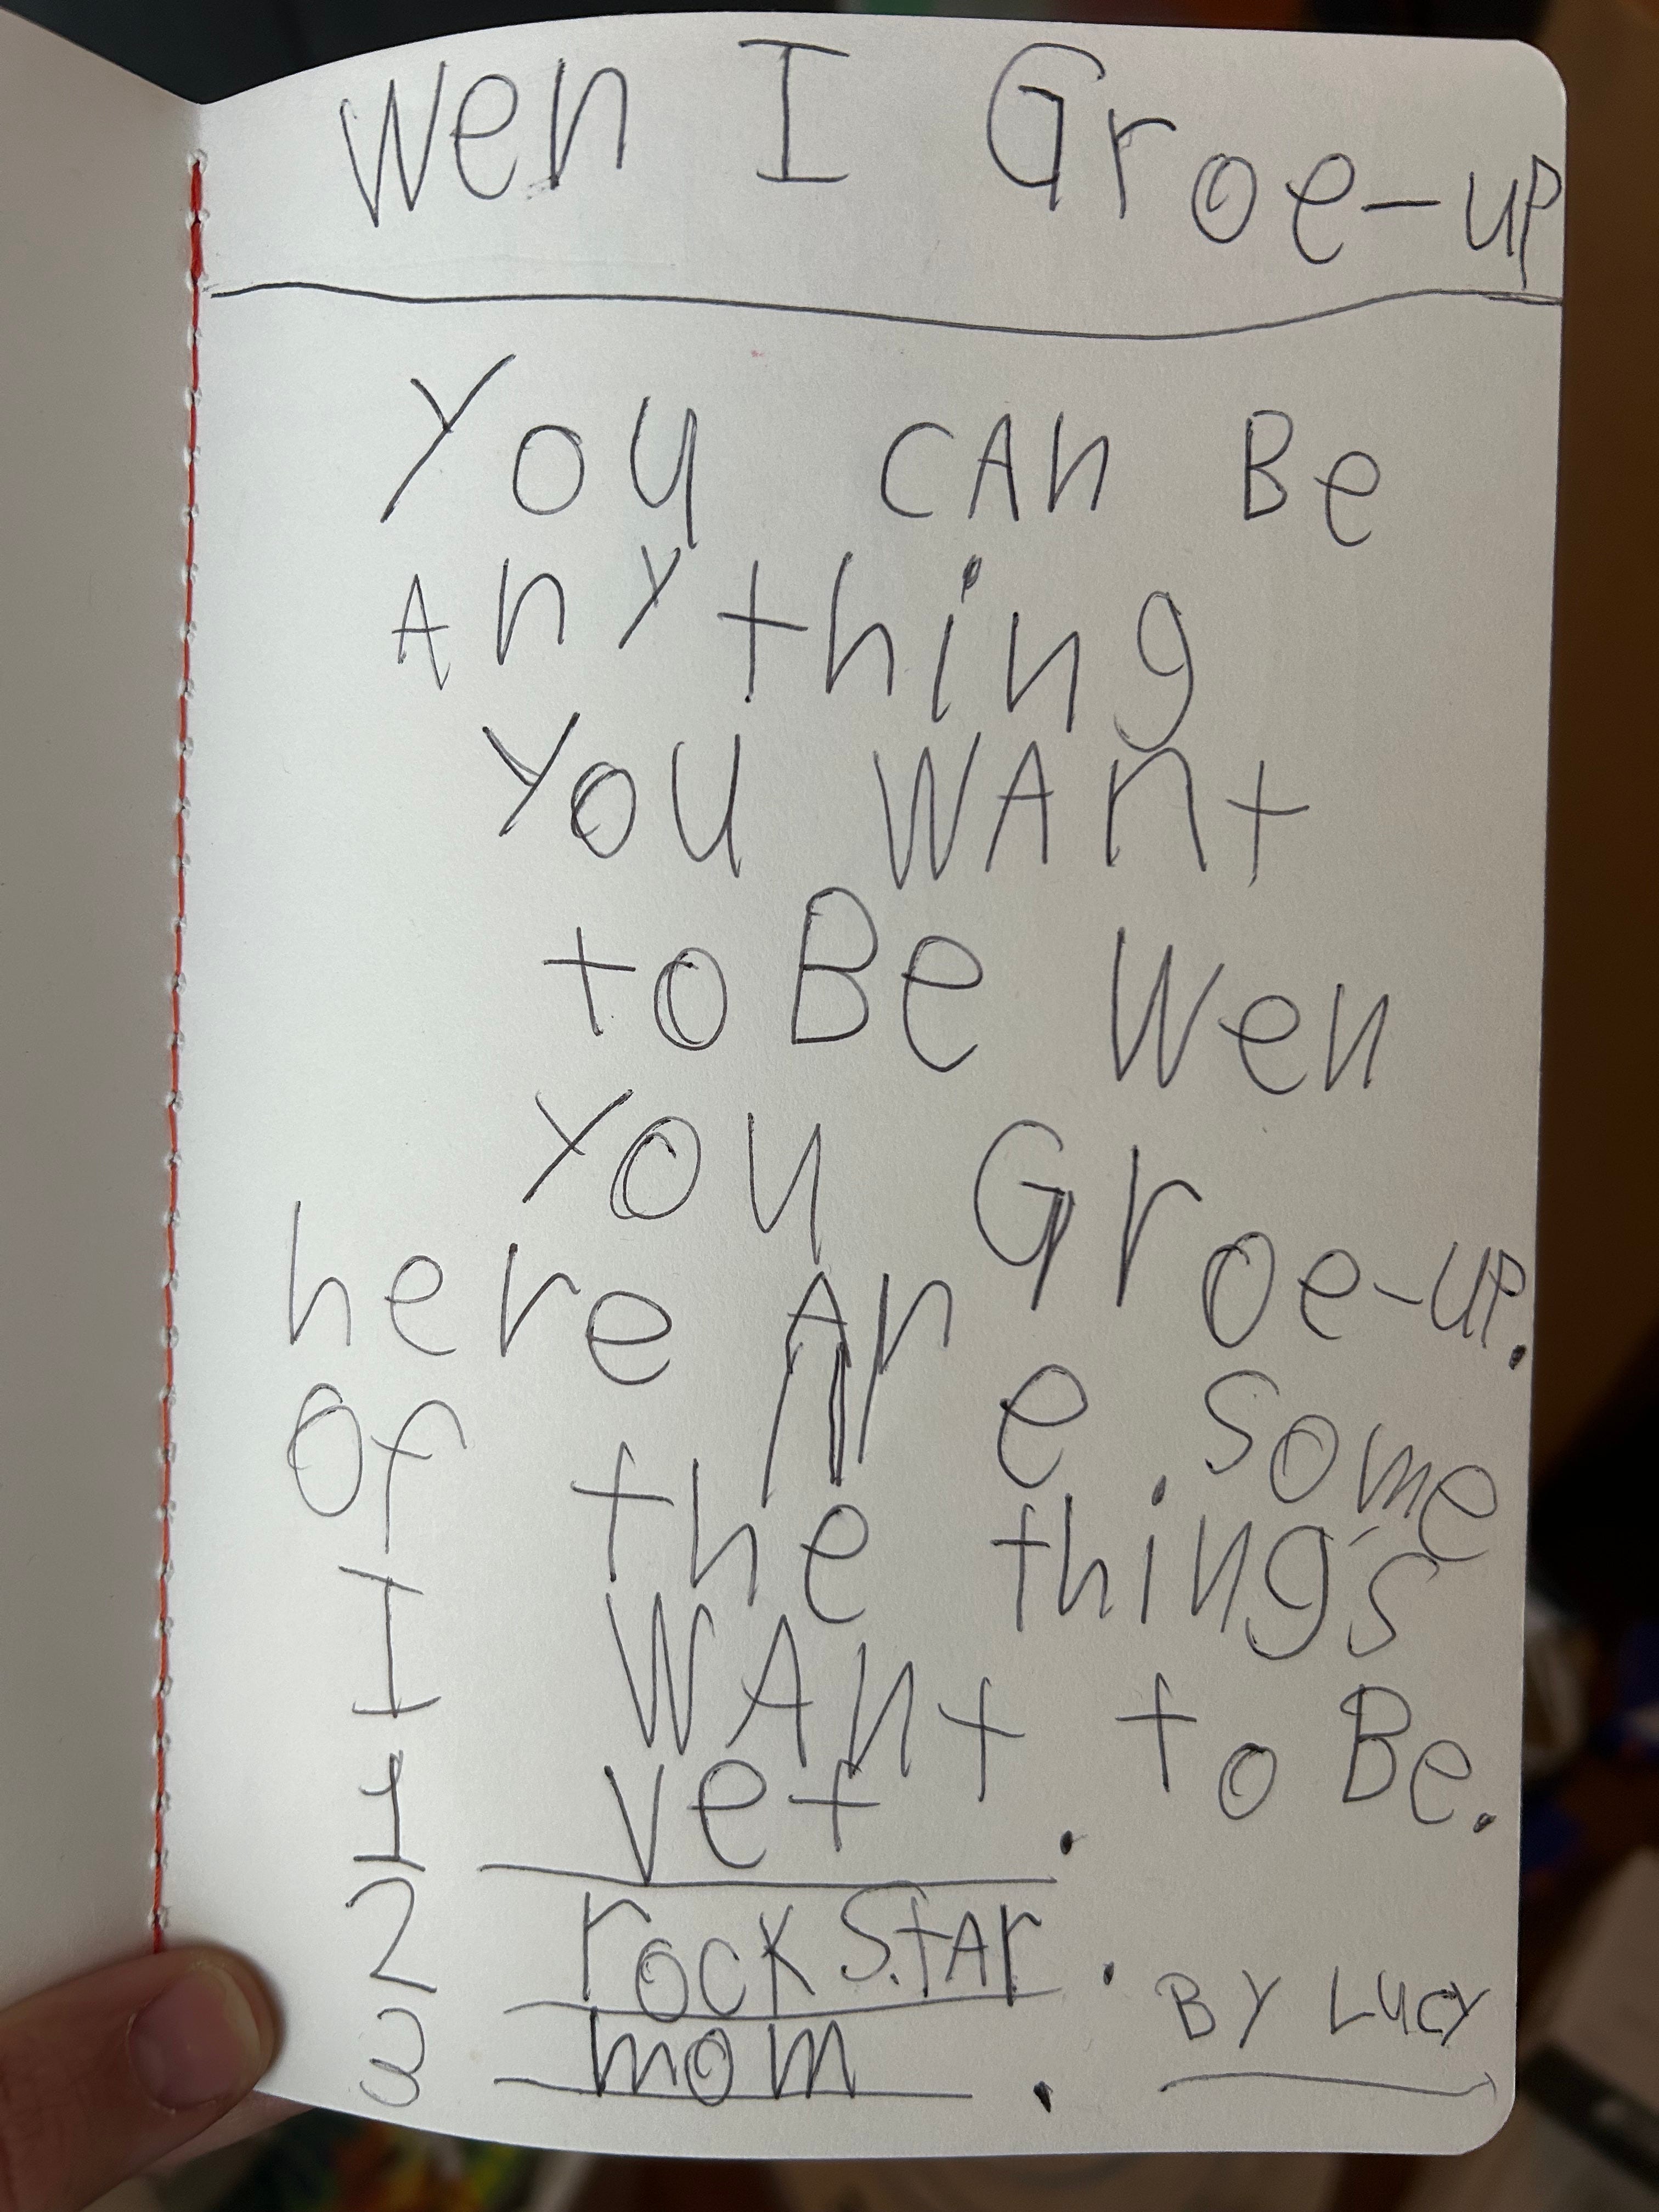 Wen I Groe-uP
You cAn Be
AnYthing
You WAnt
to Be Wen
You Groe-UP.
here Are some
of the thing's
I WAnt to Be.
1 vet.
2 rock StAr.
3 mom.
BY LucY